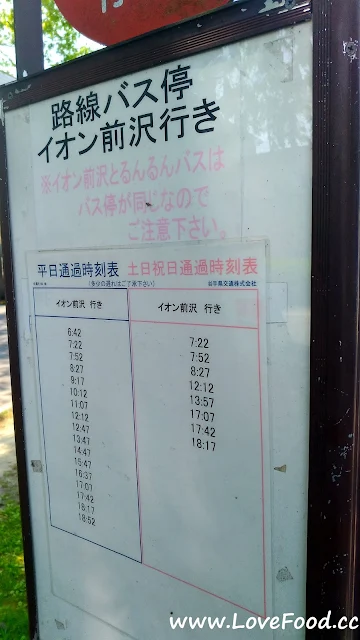 行
路線バス停
イオン前沢行き
※イオン前沢とるんるんバスは
バス停が同じなので
ご注意下さい。
平日通過時刻表 土日祝日通過時刻表
(多少の遅れはご了承下さい) 岩手県交通株式会社
イオン前沢 行き イオン前沢 行き
6:42
7:22 7:22
7:52 7:52
8:27 8:27
9:17 12:12
10:12 13:57
11:07 17:07
12:12 17:42
12:47 18:17
13:47
14:47
15:47
16:37
17:07
17:42
18:17
18:52
www.LoveFood.cc